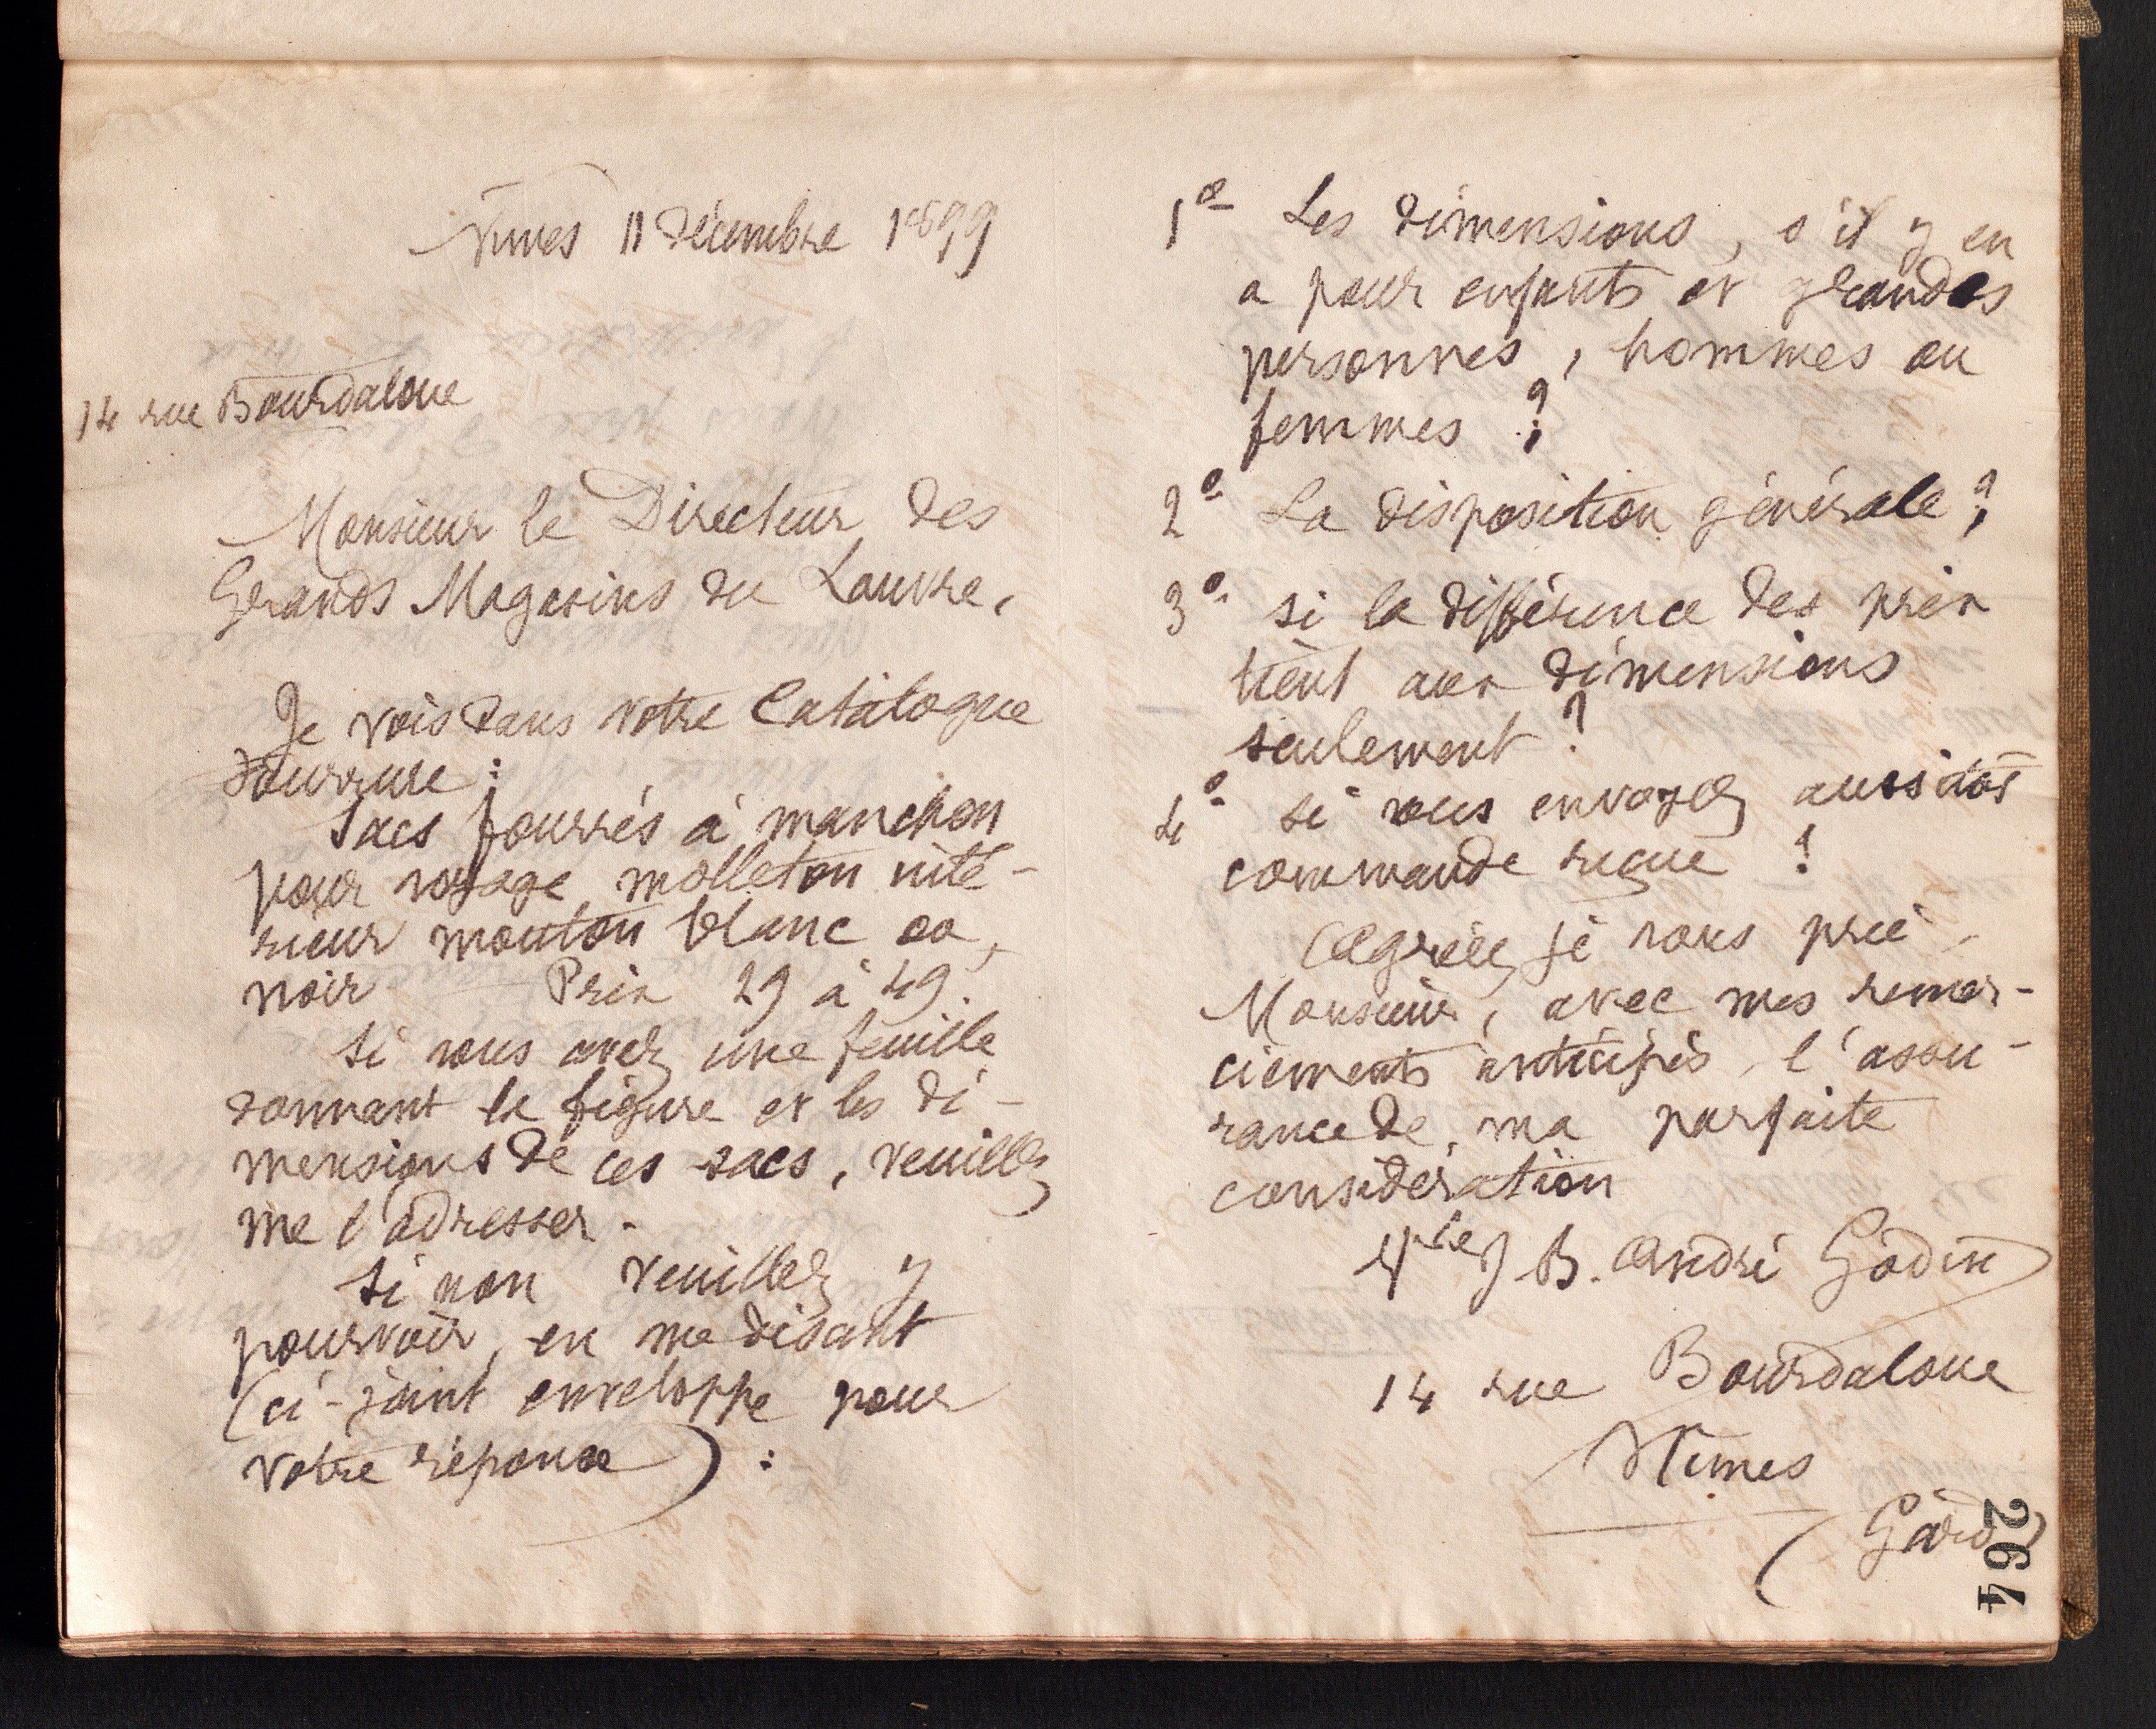 Nimes 11 décembre 1899
14 rue Bourdaloue
Monsieur le Directeur des
Grands Magasins du Louvre,
Je vois dans votre Catalogue
Fourrure :
Sacs fourrés à manchon
pour voyage molleton inté-
rieur mouton blanc ou
noir Prix 29 à 49.
Si vous avez une feuille
donnant la figure et les di-
mensions de ces sacs, veuillez
me l'adresser.
Si non veuillez y
pourvoir, en me disant
(ci-joint enveloppe pour
votre réponse) :
1º Les dimensions, s'il y en
a pour enfants et grandes
personnes, hommes ou
femmes ?
2º La disposition générale ?
3º si la différence des prix
tient aux dimensions
seulement ?
4º si vous envoyez aussitôt
commande reçue ?
Agréez je vous prie,
Monsieur, avec mes remer-
ciements anticipés l'assu-
rance de ma parfaite
considération
B. André Godin
14 rue Bourdaloue
Nîmes
(Gard)
264